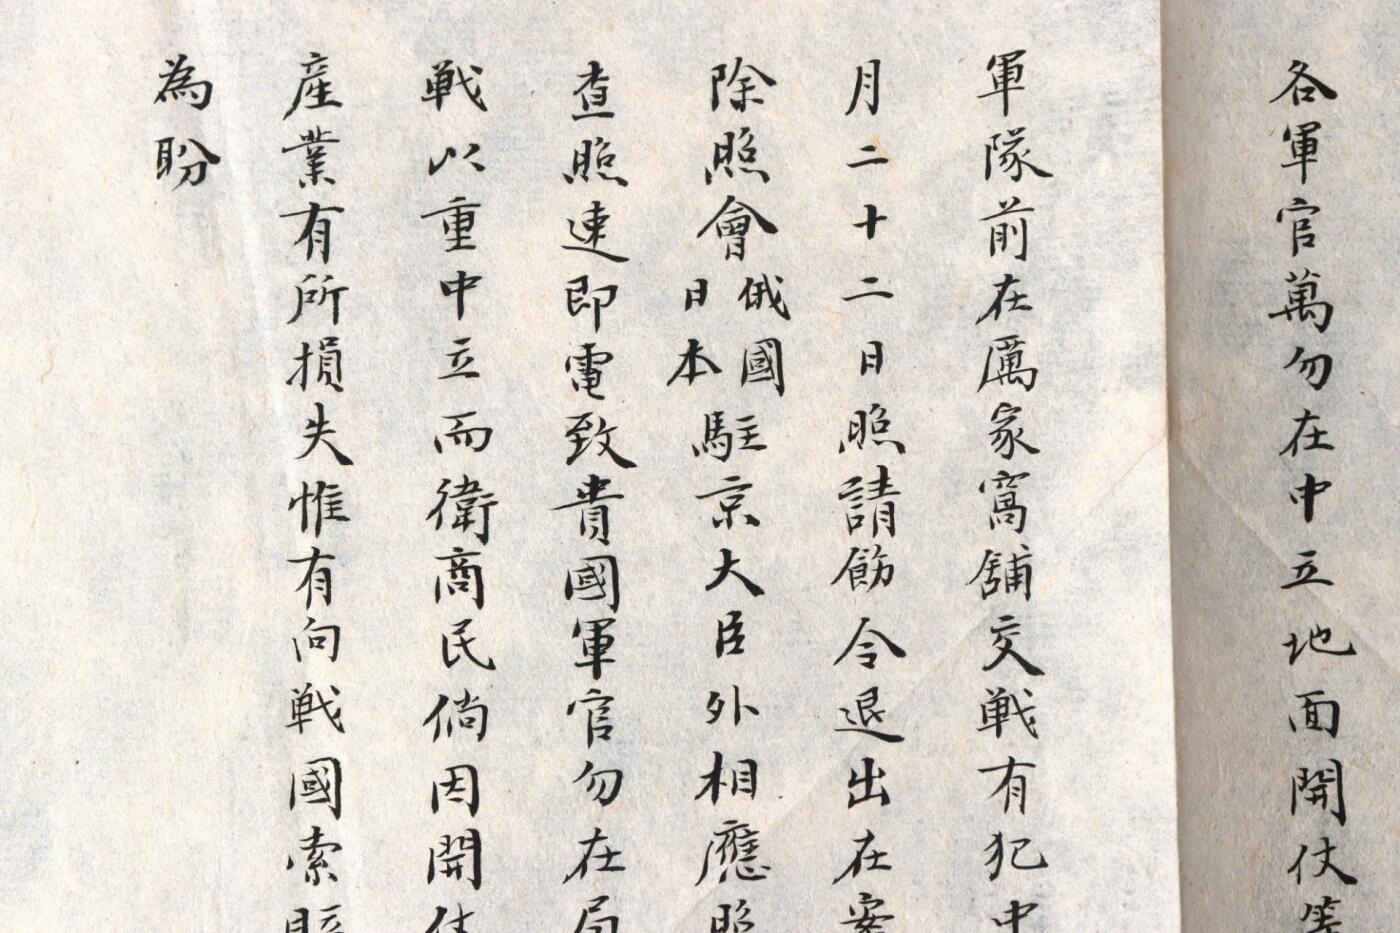 各軍官萬勿在中立地面開仗等
軍隊前在厲家窩舖交戰有犯中
月二十二日照請飭令退出在案
除照會俄國日本駐京大臣外相應照
查照速即電致貴國軍官勿在局
戰以重中立而衛商民倘因開仗
產業有所損失惟有向戰國索賠
為盼